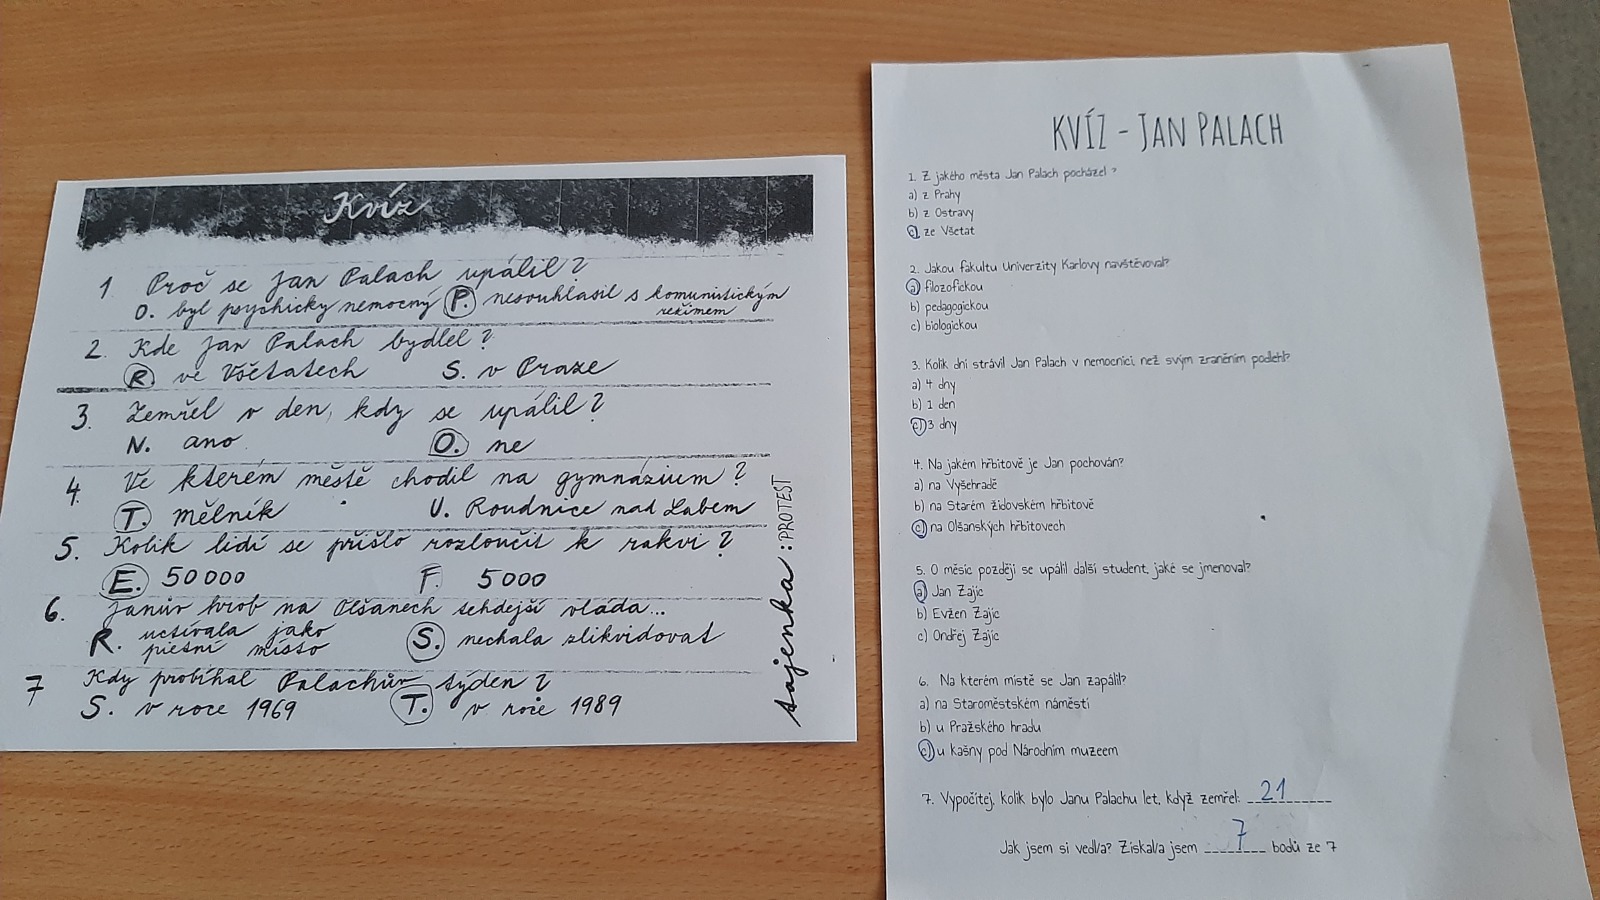 Kvíz
1. Proč se Jan Palach upálil?
O. byl psychicky nemocný P. nesouhlasil s komunistickým
režimem
2. Kde Jan Palach bydlel?
R ve Všetatech S. v Praze
3. Zemřel v den, kdy se upálil?
N. ano O. ne
4. Ve kterém městě chodil na gymnázium?
T. Mělník U. Roudnice nad Labem
5. Kolik lidí se přišlo rozloučit k rakvi?
E. 50 000 F. 5 000
6. Janův hrob na Olšanech tehdejší vláda...
R. uctívala jako
pietní místo S. nechala zlikvidovat
7 Kdy probíhal Palachův týden?
S. v roce 1969 T. v roce 1989
tajenka: PROTEST
KVÍZ - JAN PALACH
1. Z jakého města Jan Palach pocházel?
a) z Prahy
b) z Ostravy
c) ze Všetat
2. Jakou fakultu Univerzity Karlovy navštěvoval?
a) filozofickou
b) pedagogickou
c) biologickou
3. Kolik dní strávil Jan Palach v nemocnici, než svým zraněním podlehl?
a) 4 dny
b) 1 den
c) 3 dny
4. Na jakém hřbitově je Jan pochován?
a) na Vyšehradě
b) na Starém židovském hřbitově
c) na Olšanských hřbitovech
5. O měsíc později se upálil další student, jaké se jmenoval?
a) Jan Zajíc
b) Evžen Zajíc
c) Ondřej Zajíc
6. Na kterém místě se Jan zapálil?
a) na Staroměstském náměstí
b) u Pražského hradu
c) u kašny pod Národním muzeem
7. Vypočítej, kolik bylo Janu Palachu let, když zemřel: 21
Jak jsem si vedl/a? Získal/a jsem 7 bodů ze 7